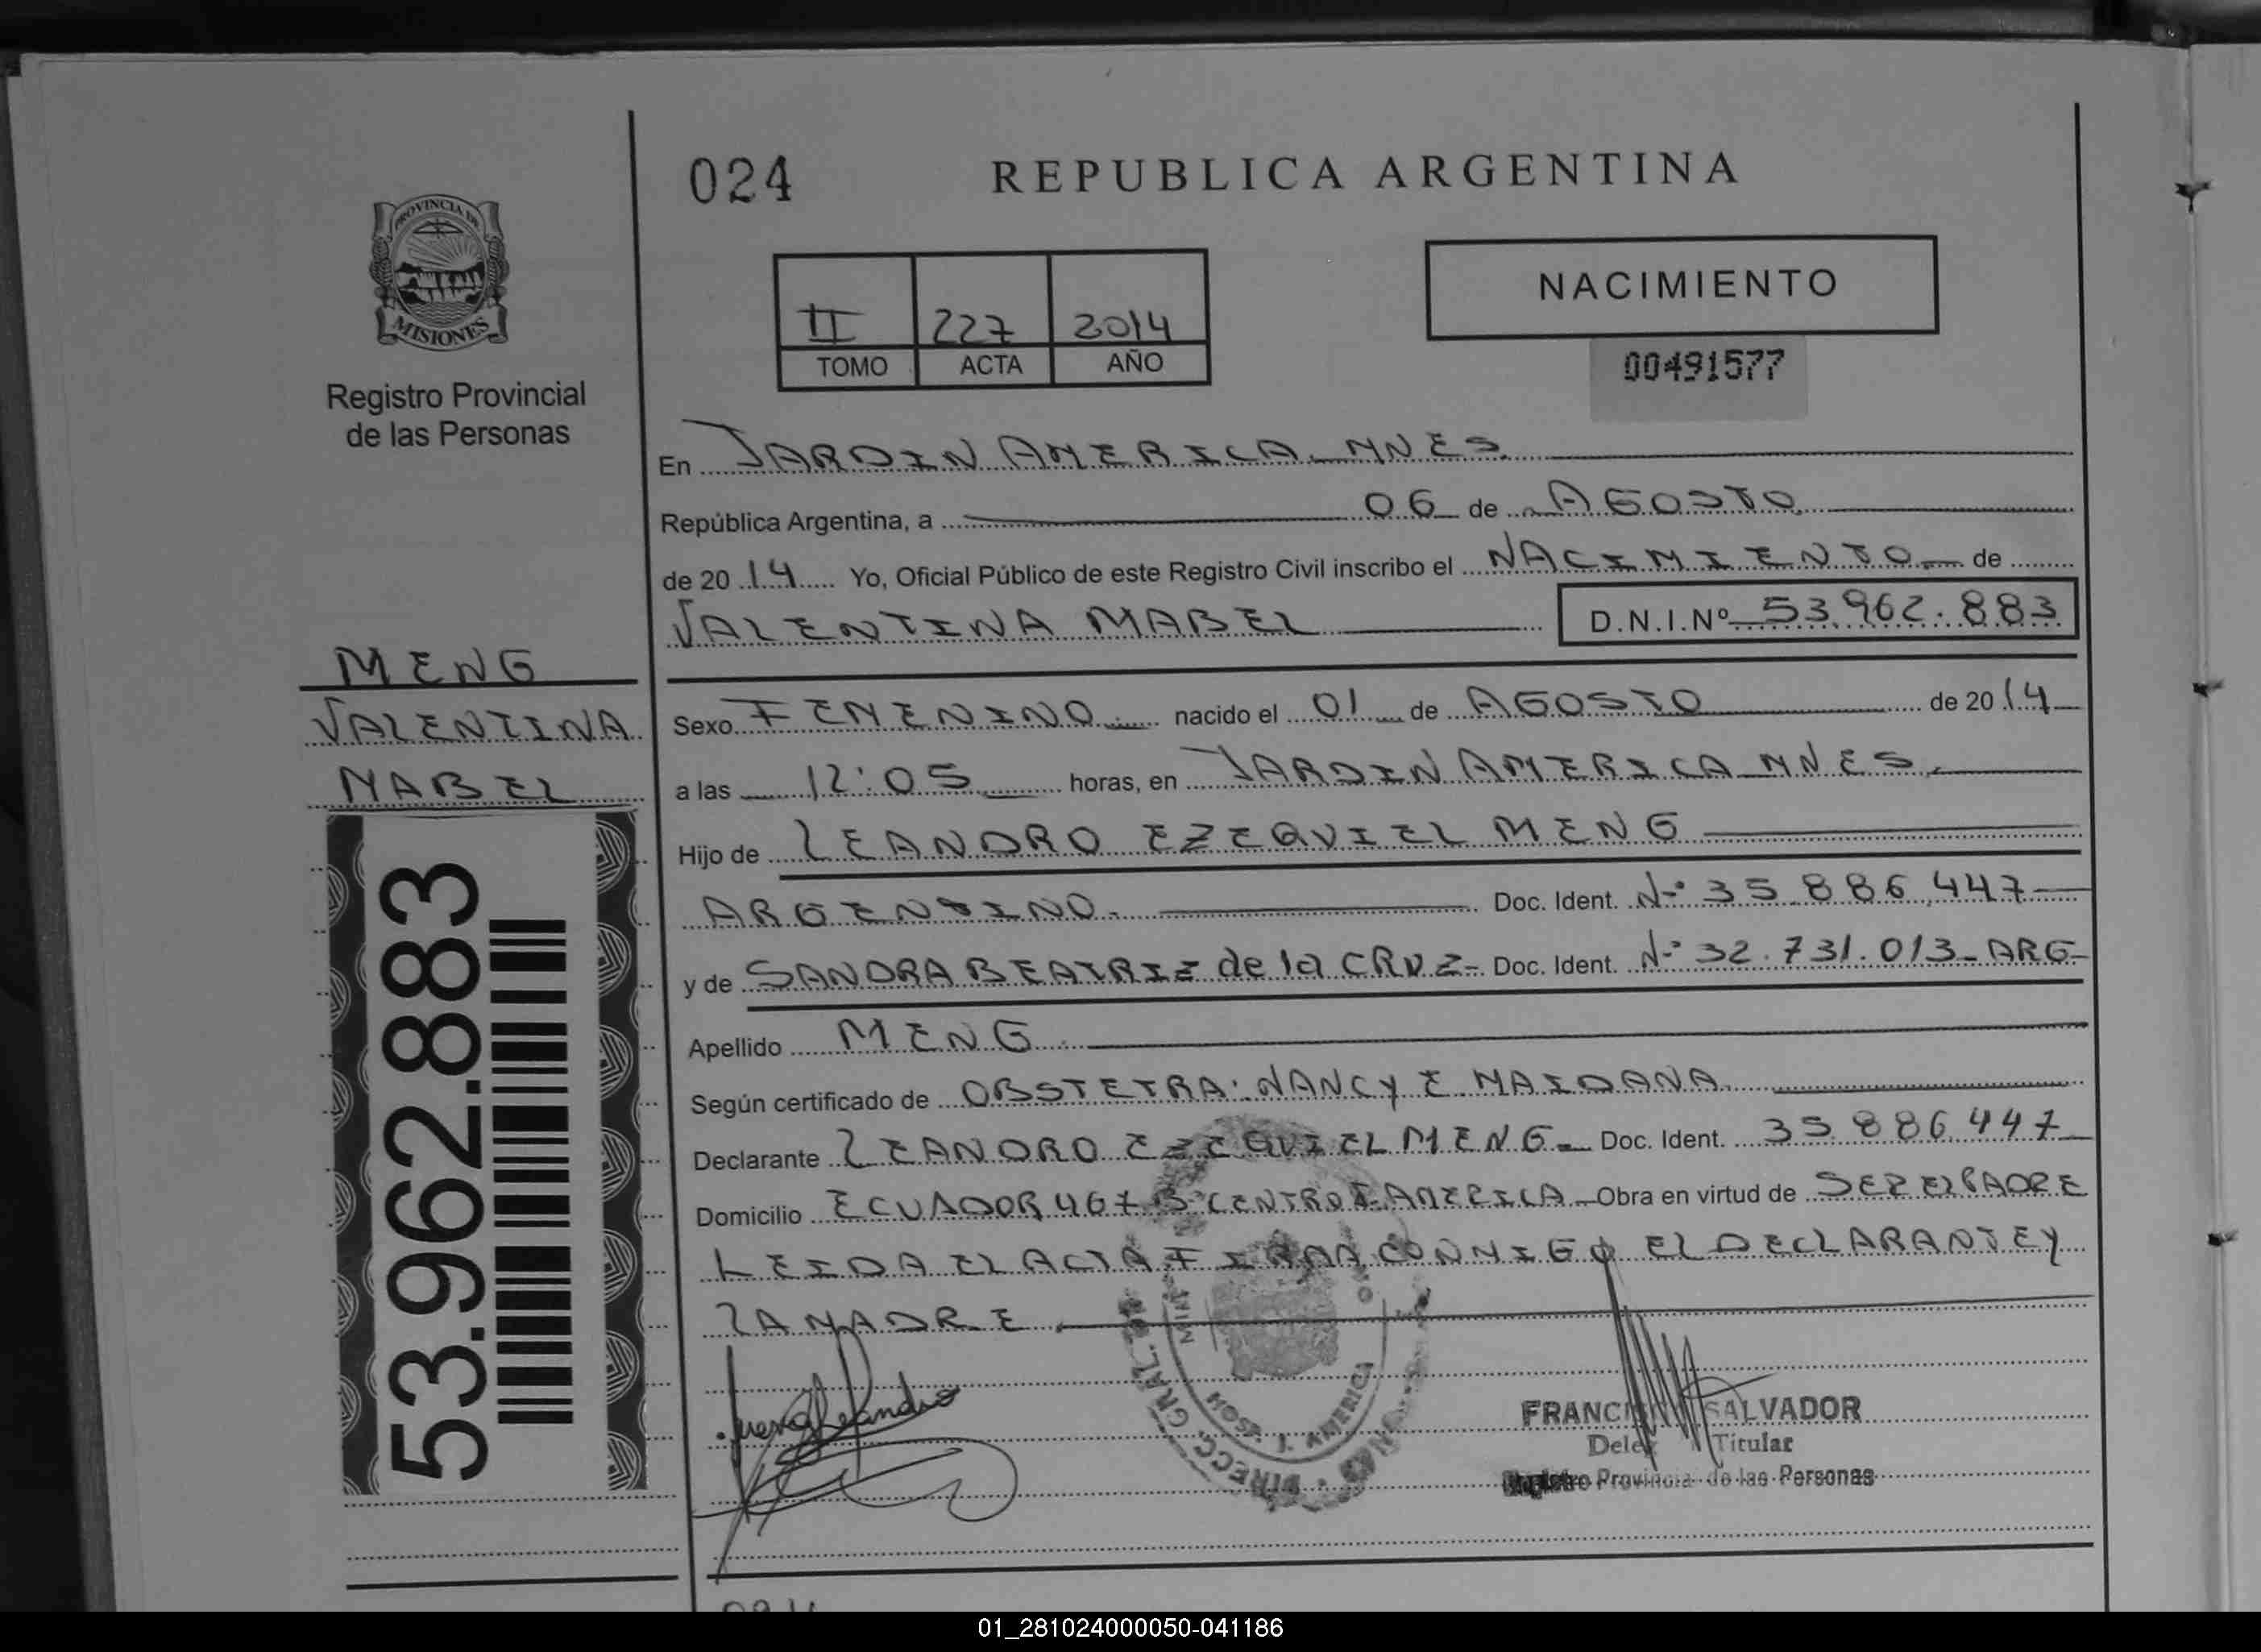 024
REPUBLICA ARGENTINA
PROVINCIA DE
MISIONES
Registro Provincial
de las Personas
II 227 2014
TOMO ACTA AÑO
NACIMIENTO
00491577
En JARDIN AMERICA. MNES.
República Argentina, a 06 de AGOSTO
de 20 14 Yo, Oficial Público de este Registro Civil inscribo el NACIMIENTO de
VALENTINA MABEL D.N.I.Nº 53.962.883
MENG
VALENTINA
MABEL
53.962.883
Sexo FEMENINO nacido el 01 de AGOSTO de 20 14
a las 12:05 horas, en JARDIN AMERICA MNES.
Hijo de LEANDRO EZEQUIEL MENG
ARGENTINO. Doc. Ident. Nº 35.886.447
y de SANDRA BEATRIZ de la CRUZ- Doc. Ident. Nº 32.731.013-ARG-
Apellido MENG
Según certificado de OBSTETRA: NANCY E. MAIDANA
Declarante LEANDRO EZEQUIEL MENG Doc. Ident. 35.886.447
Domicilio ECUADOR 467 Bº CENTRO J. AMERICA Obra en virtud de SER EL PADRE
LEIDA EL ACTA FIRMA CONMIGO EL DECLARANTE Y
LA MADRE
Meng Leandro
DIRECC. GRAL.
J. AMERICA
SALVADOR
Titular
Registro Provincial de las Personas
01_281024000050-041186